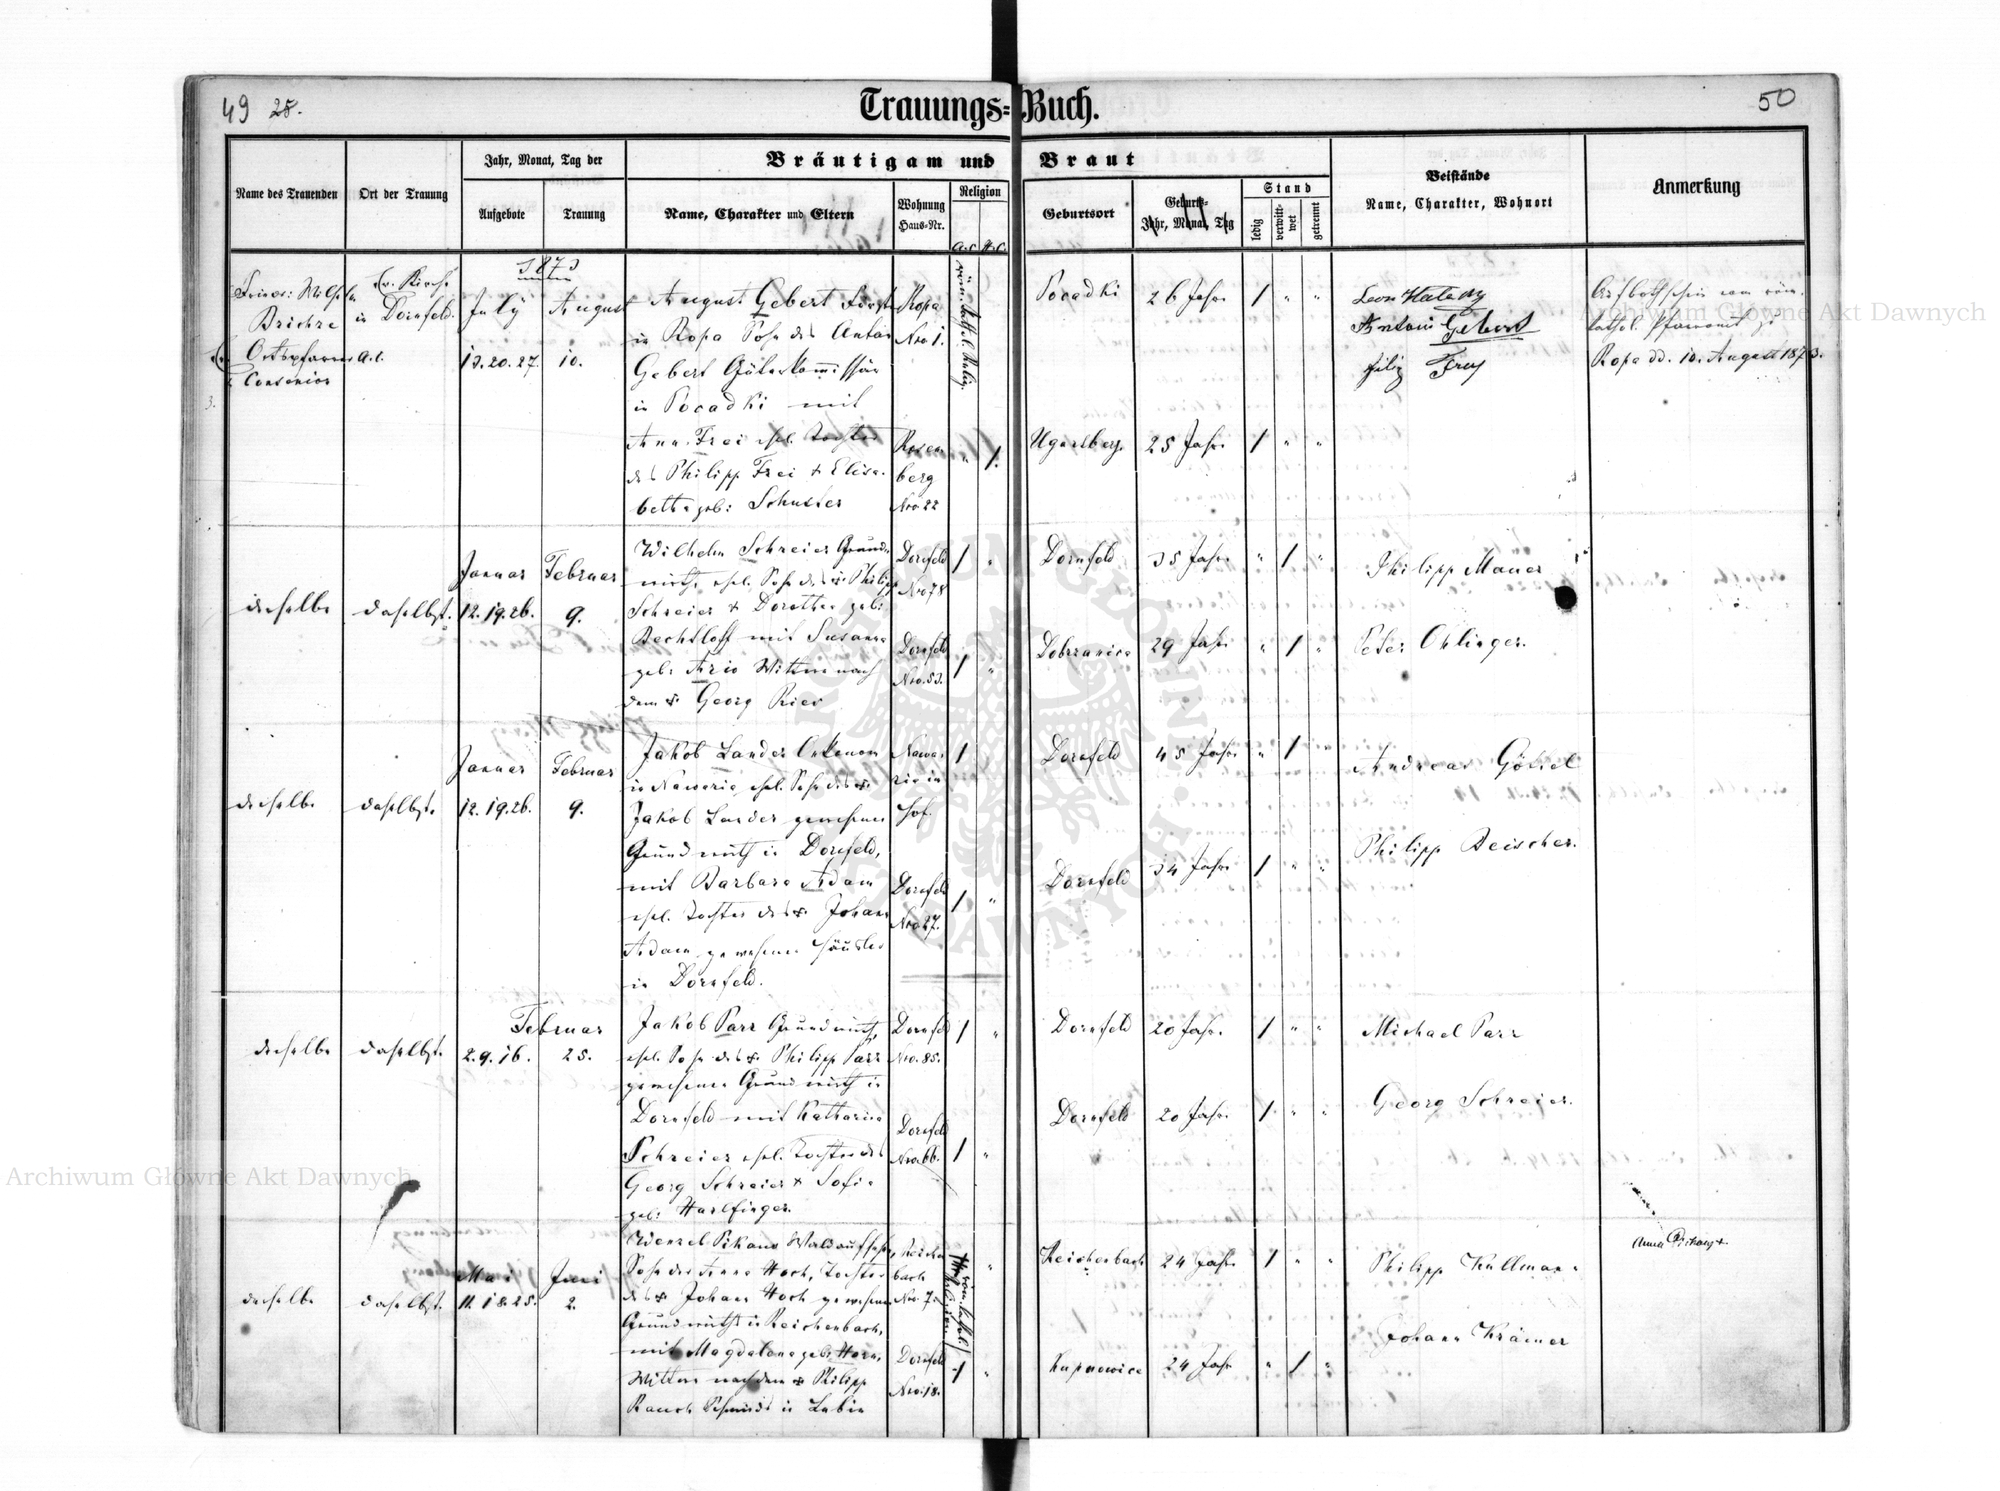 49 25.
Trauungs-Buch.
50
Name des Trauenden
Ort der Trauung
Jahr, Monat, Tag der
Aufgebote
Trauung
Bräutigam und Braut
Name, Charakter und Eltern
Wohnung
Haus-Nr.
Religion
A.C. H.C.
Geburtsort
Geburts-
Jahr, Monat, Tag
Stand
ledig
verwitt-
wet
getrennt
Beistände
Name, Charakter, Wohnort
Anmerkung
1873
Ev. Kirche
in Dornfeld.
A.C.
July
13. 20. 27.
August
10.
August Gebert Förster
in Ropa Sohn des Anton
Gebert Güterkommissär
in Pocadki mit
Anna Frei ehel. Tochter
des Philipp Frei & Elisa-
betha geb: Schuster
Ropa
Nro 1.
Rosen
berg
Nro 22
röm. kathol. Relig.
" 1.
Pocadki
26 Jahr
1 " "
Ugartsberg
25 Jahr
1 " "
Antoni Gebert
Filip Frey
Ropa dd. 10. August 1873.
derselbe
daselbst.
Januar
12. 19. 26.
Februar
9.
Wilhelm Schreier Grund-
wirth, ehel. Sohn des Philipp
Schreier & Dorothea geb:
Bechtloff mit Susanna
geb: Witwe nach
dem Georg Ries
Dornfeld
Nro 78
Dornfeld
Nro. 53.
1 "
1 "
Dornfeld
35 Jahr
" 1 "
Dobrzanica
29 Jahr
" 1 "
Philipp Mauer
Peter Ohlinger.
derselbe
daselbst.
Januar
12. 19. 26.
Februar
9.
Jakob Lander Oekonom
in Nawaria, ehel. Sohn des
Jakob Lander gewesenen
Grundwirth in Dornfeld,
mit Barbara Adam
ehel. Tochter des Johann
Adam gewesenen Häusler
in Dornfeld.
Nawa-
ria in
Hof.
Dornfeld
Nro 27.
1
1 "
Dornfeld
45 Jahr
" 1 "
Dornfeld
34 Jahr
1 " "
Andreas Götzel
Philipp Beischer.
derselbe
daselbst.
Februar
2. 9. 16.
25.
Jakob Parr Grundwirth,
ehel. Sohn des Philipp Parr
gewesenen Grundwirth in
Dornfeld mit Katharina
Schreier ehel. Tochter des
Georg Schreier & Sofia
geb: Harlfinger.
Dornfeld
Nro. 85.
Dornfeld
Nro 66.
1 "
1 "
Dornfeld
20 Jahr.
1 " "
Dornfeld
20 Jahr.
1 " "
Michael Parr
Georg Schreier.
derselbe
daselbst.
Mai
11. 18. 25.
Juni
2.
Wenzel Pikaus Waldaufseher,
Sohn der Anna Hoch, Tochter
des Johann Hoch gewesenen
Grundwirths in Reichenbach,
mit Magdalena geb: Horn,
Witwe nach dem Philipp
Rauch Schmidt in Lubin
Reichen
bach
Nro. 7.
Dornfeld
Nro. 18.
1 "
Reichenbach
24 Jahr
1 " "
Kupnowice
24 Jahr
" 1 "
Philipp Kullmann
Johann Krämer
Archiwum Główne Akt Dawnych
Archiwum Główne Akt Dawnych
ARCHIWUM GŁÓWNE AKT DAWNYCH